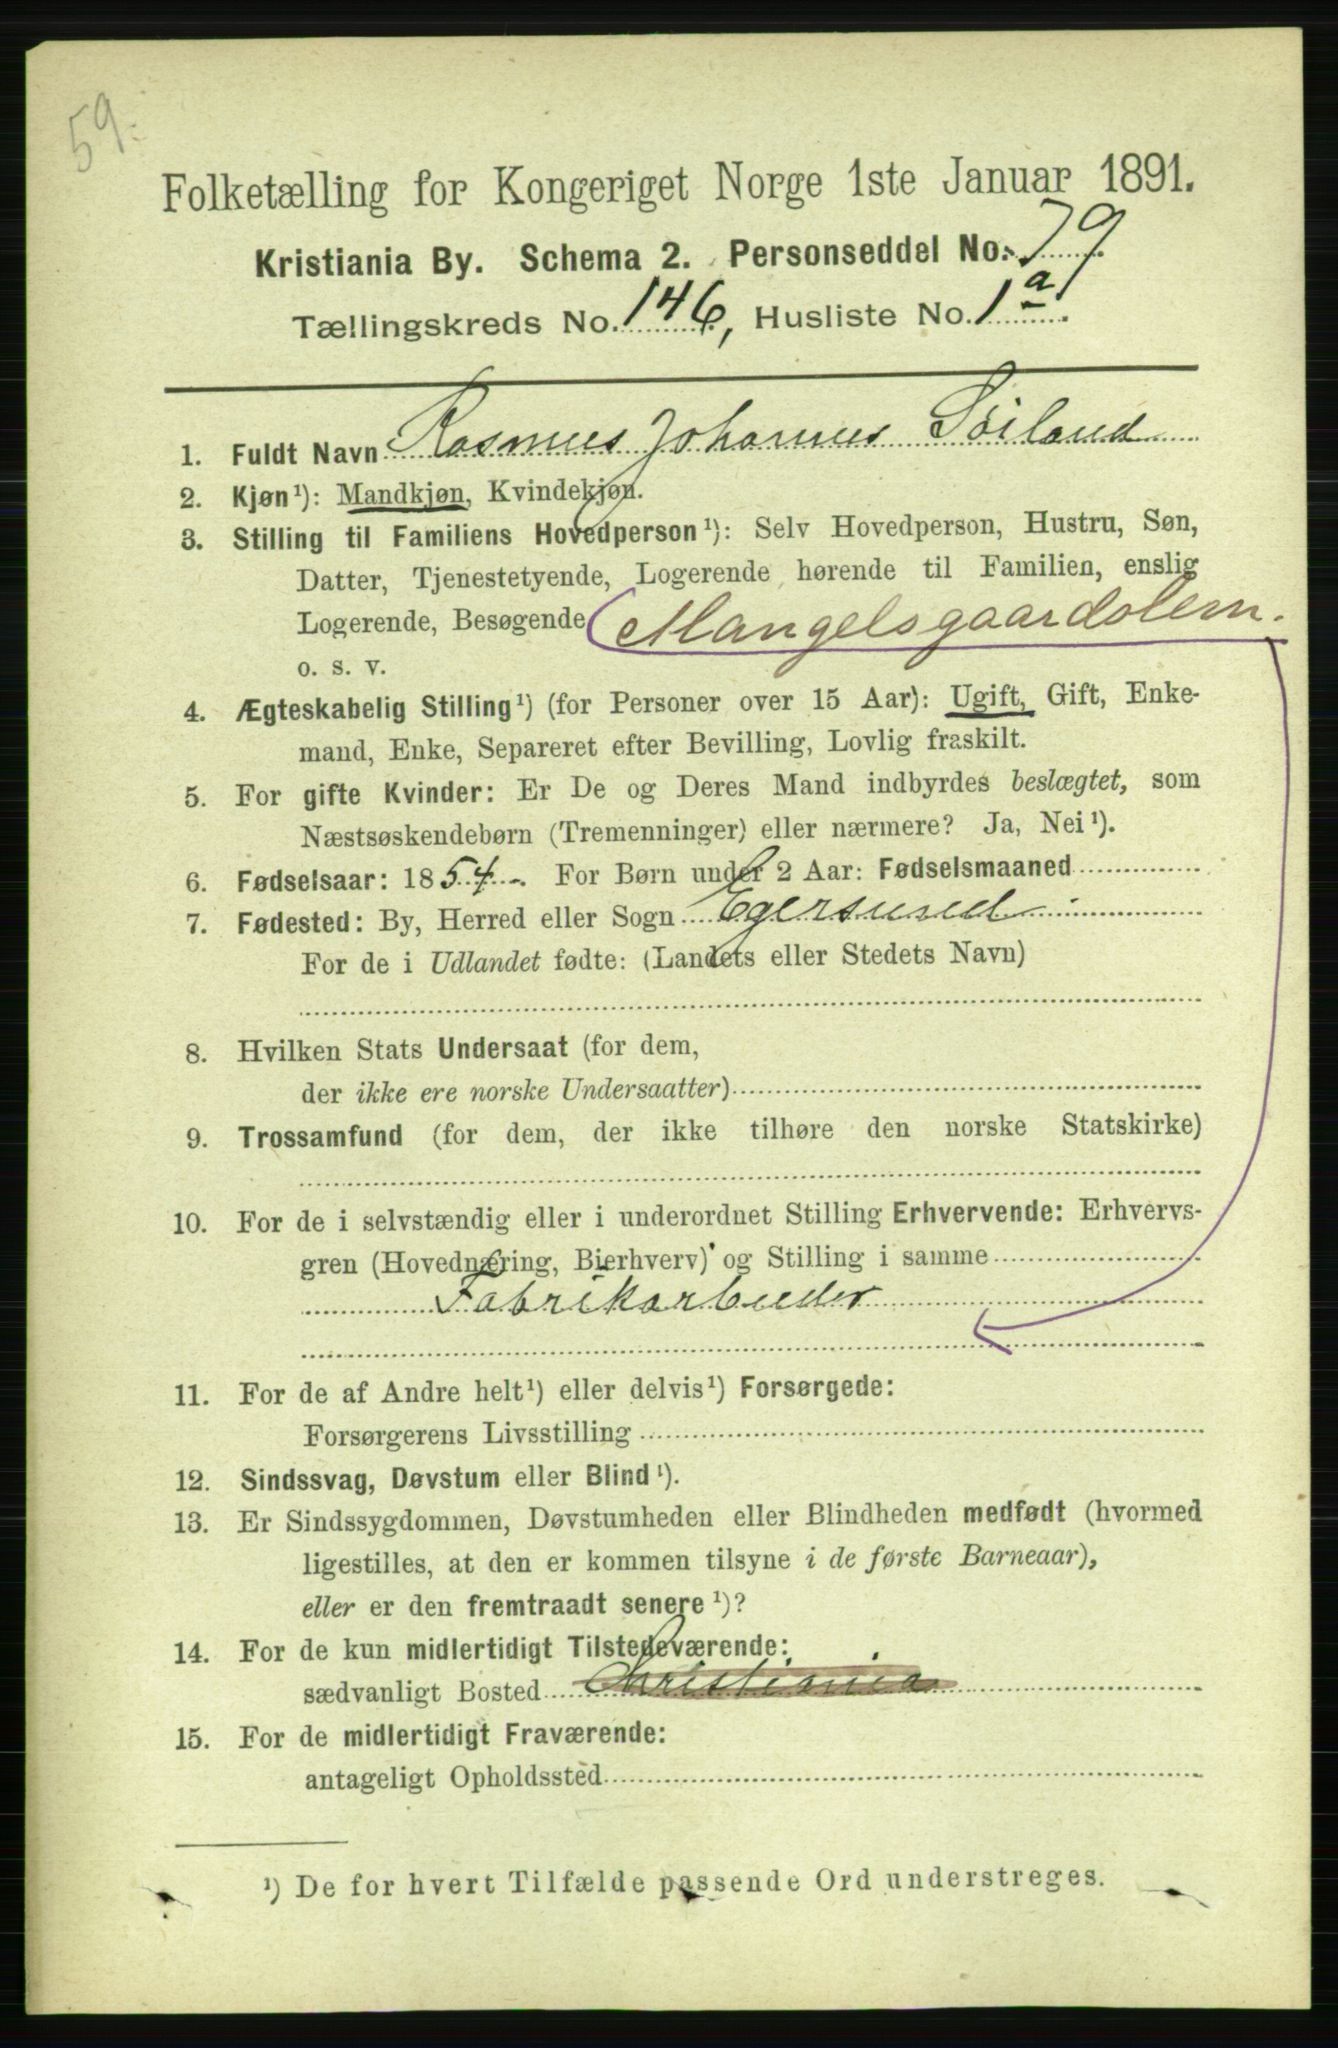 59.
Folketælling for Kongeriget Norge 1ste Januar 1891.
Kristiania By. Schema 2. Personseddel No. 79.
Tællingskreds No. 146, Husliste No. 1 a.
1. Fuldt Navn Rasmus Johannes Soiland
2. Kjøn ¹): Mandkjøn, Kvindekjøn.
3. Stilling til Familiens Hovedperson ¹): Selv Hovedperson, Hustru, Søn,
Datter, Tjenestetyende, Logerende hørende til Familien, enslig
Logerende, Besøgende Mangelsgaardslem.
o. s. v.
4. Ægteskabelig Stilling ¹) (for Personer over 15 Aar): Ugift, Gift, Enke-
mand, Enke, Separeret efter Bevilling, Lovlig fraskilt.
5. For gifte Kvinder: Er De og Deres Mand indbyrdes beslægtet, som
Næstsøskendebørn (Tremenninger) eller nærmere? Ja, Nei ¹).
6. Fødselsaar: 1854. For Børn under 2 Aar: Fødselsmaaned
7. Fødested: By, Herred eller Sogn Egersund
For de i Udlandet fødte: (Landets eller Stedets Navn)
8. Hvilken Stats Undersaat (for dem,
der ikke ere norske Undersaatter)
9. Trossamfund (for dem, der ikke tilhøre den norske Statskirke)
10. For de i selvstændig eller i underordnet Stilling Erhvervende: Erhvervs-
gren (Hovednæring, Bierhverv) og Stilling i samme
Fabrikarbeider
11. For de af Andre helt ¹) eller delvis ¹) Forsørgede:
Forsørgerens Livsstilling
12. Sindssvag, Døvstum eller Blind ¹).
13. Er Sindssygdommen, Døvstumheden eller Blindheden medfødt (hvormed
ligestilles, at den er kommen tilsyne i de første Barneaar),
eller er den fremtraadt senere ¹)?
14. For de kun midlertidigt Tilstedeværende:
sædvanligt Bosted Christiania
15. For de midlertidigt Fraværende:
antageligt Opholdssted
¹) De for hvert Tilfælde passende Ord understreges.